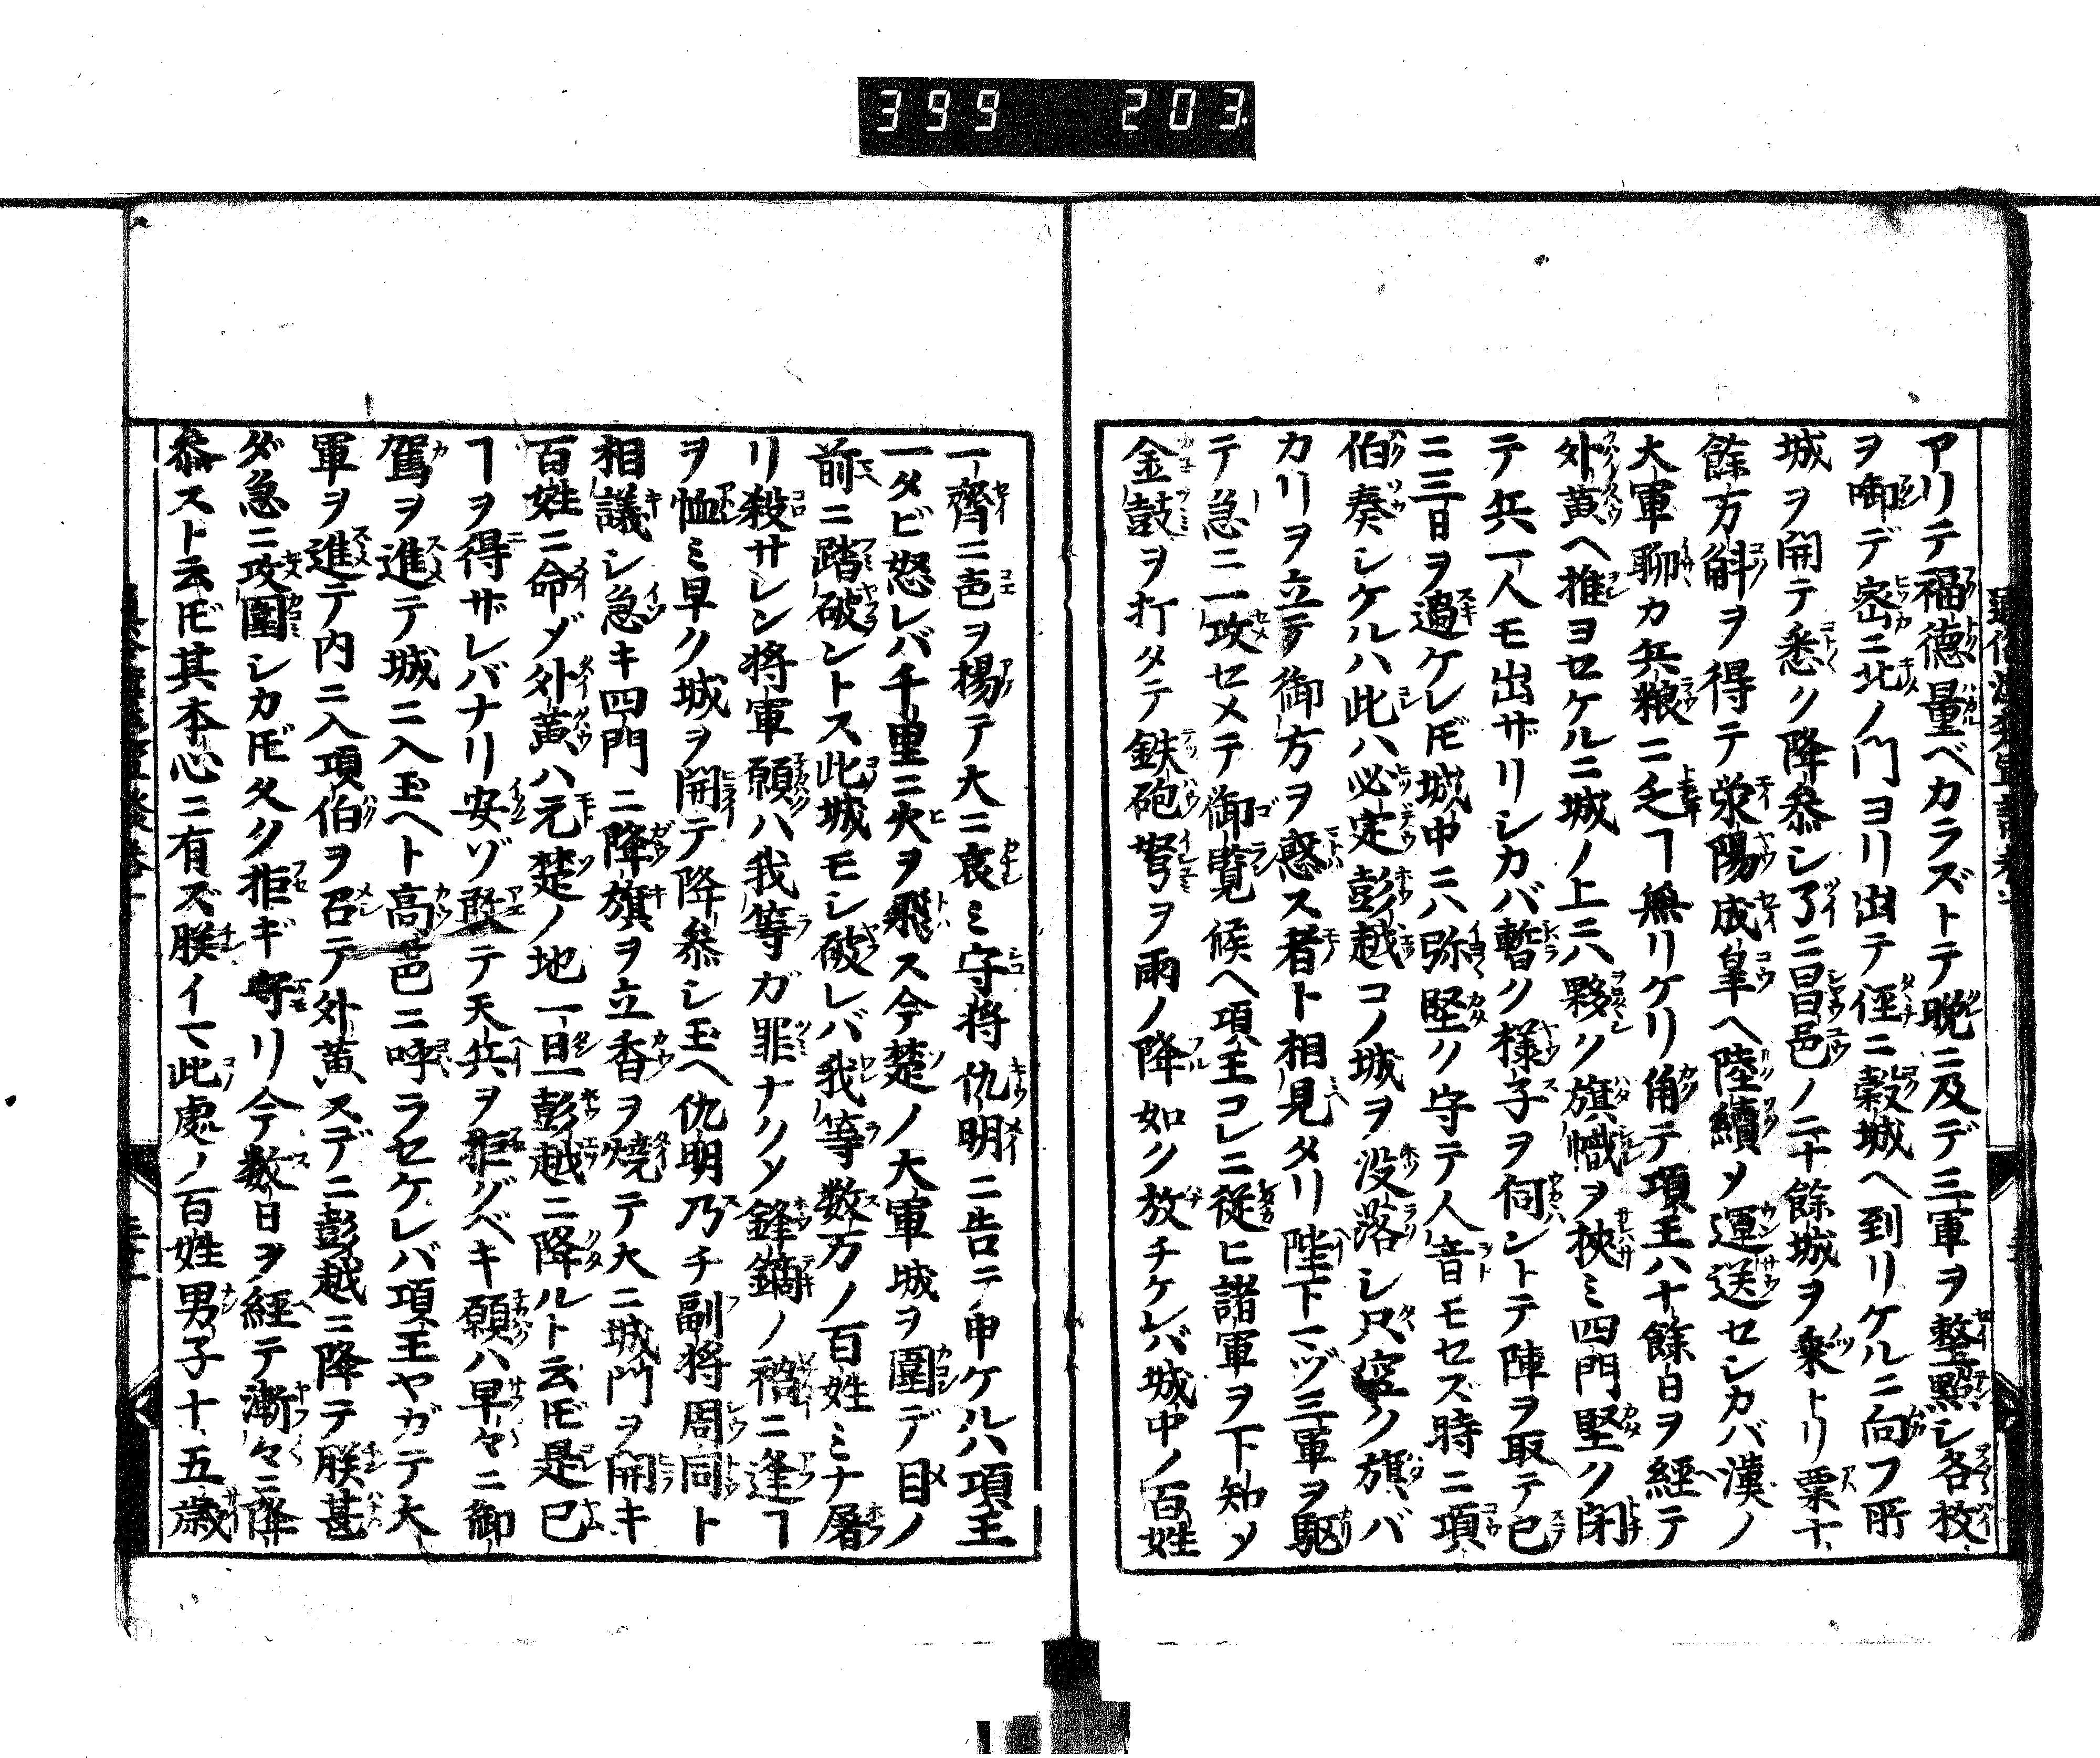 399 203.
アリテ福德量ベカラズトテ晩ニ及デ三軍ヲ整點シ各枚
ヲ啣デ密ニ北ノ門ヨリ出テ徑ニ穀城ヘ到リケルニ向フ所
城ヲ開テ悉ク降参シ了ニ昌邑ノ二十餘城ヲ乗トリ粟十
餘万斛ヲ得テ滎陽成皐ヘ陸續メ運送セシカバ漢ノ
大軍聊カ兵粮ニ乏ヿ無リケリ角テ項王八十餘日ヲ經テ
外黄ヘ推ヨセケルニ城ノ上ニハ夥ク旗幟ヲ挾ミ四門堅ク閉
テ兵一人モ出ザリシカバ暫ク様子ヲ伺ントテ陣ヲ取テ已
ニ三日ヲ過ケレ𪜈城中ニハ弥堅ク守テ人音モセス時ニ項
伯奏シケルハ此ハ必定彭越コノ城ヲ没落シ只空ク旗バ
カリヲ立テ御方ヲ惑ス者ト相見タリ陛下一ヅ三軍ヲ駆
テ急ニ一攻セメテ御覧候ヘ項王コレニ從ヒ諸軍ヲ下知メ
金鼓ヲ打タテ鉄砲弩ヲ雨ノ降如ク放チケレバ城中ノ百姓
一齊ニ声ヲ揚テ大ニ哀ミ守将仇明ニ告テ申ケルハ項王
一タビ怒レバ千里ニ火ヲ飛ス今楚ノ大軍城ヲ圍デ目ノ
前ニ踏破ントス此城モシ破レバ我等数万ノ百姓ミナ屠
リ殺サレン将軍願ハ我等ガ罪ナクソ鋒鏑ノ禍ニ逢ヿ
ヲ恤ミ早ク城ヲ開テ降参シ玉ヘ仇明乃チ副将周同ト
相議シ急キ四門ニ降旗ヲ立香ヲ燒テ大ニ城門ヲ開キ
百姓ニ命ヅ外黄ハ元楚ノ地一旦彭越ニ降ルト云𪜈是已
ヿヲ得ザレバナリ安ゾ敢テ天兵ヲ拒グベキ願ハ早々ニ御
駕ヲ進テ城ニ入玉ヘト高声ニ呼ラセケレバ項王ヤガテ大
軍ヲ進テ内ニ入項伯ヲ召テ外黄スデニ彭越ニ降テ朕甚
ダ急ニ攻圍シカ𪜈久ク拒ギ守リ今数日ヲ經テ漸々ニ降
参スト云𪜈其本心ニ有ズ朕イマ此處ノ百姓男子十五歳